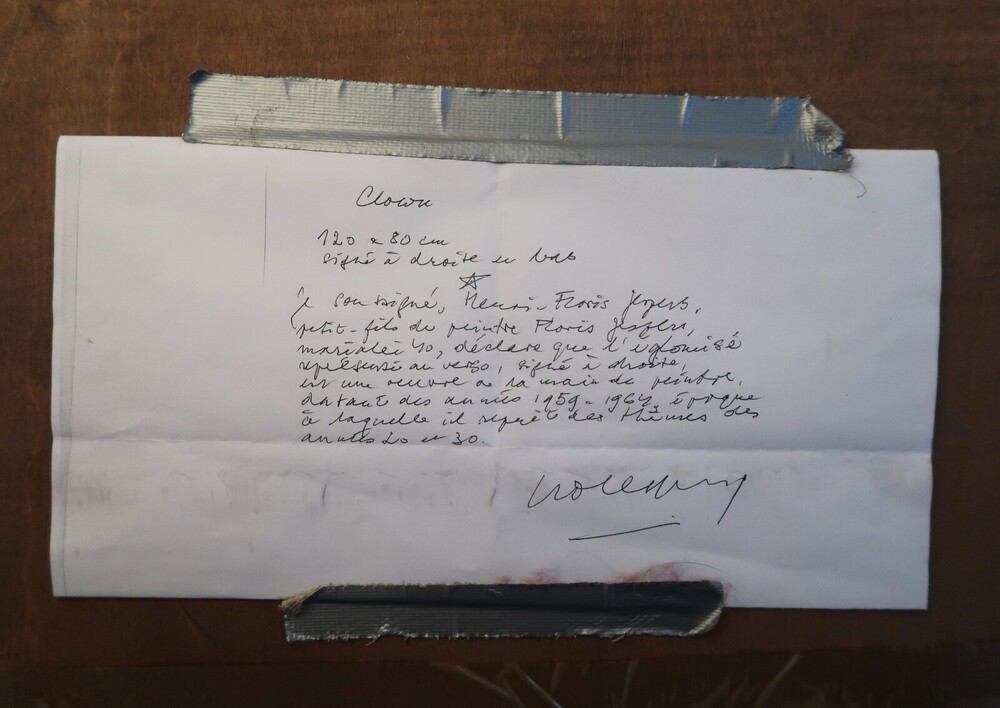 Clown
120 x 80 cm
signé à droite en bas
je soussigné, Henri-Floris Jespers,
petit-fils du peintre Floris Jespers,
déclare que l'églomisé
au verso, signé à droite,
est une oeuvre de la main du peintre,
datant des années 1959-1964, époque
à laquelle il reprit des thèmes des
années 20 et 30.